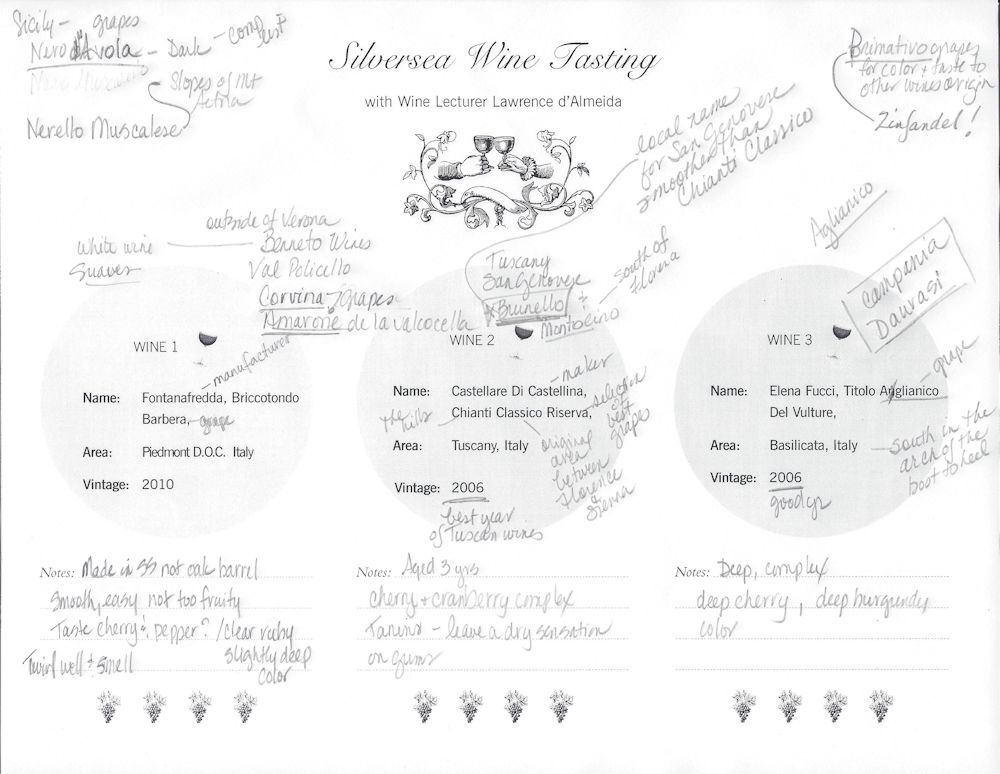 Sicily - grapes
Nero d'Avola - Dark - complex
- Slopes of Mt
Aetna
Nerello Muscalese
Silversea Wine Tasting
with Wine Lecturer Lawrence d'Almeida
Primativo grapes
for color + taste to
other wines origin
Zinfandel!
local name
for San Genovese
smoother than
Chianti Classico
Aglianico
Campania
Daurasi
outside of Verona
white wine
Suaver
Benneto Wines
Val Policello
Corvina - grapes
Amarone de la valcocella
Tuscany
San Genovese
*Brunello
Montolcino
south of
Florena
WINE 1
- manufacturer
Name: Fontanafredda, Briccotondo
Barbera, - grape
Area: Piedmont D.O.C. Italy
Vintage: 2010
WINE 2
- maker
Name: Castellare Di Castellina,
Chianti Classico Riserva,
the hills
selection
of
best
grape
Area: Tuscany, Italy
original
area
between
Florence
Sienna
Vintage: 2006
best year
of Tuscan wines
WINE 3
- grape
Name: Elena Fucci, Titolo Anglianico
Del Vulture,
Area: Basilicata, Italy
- south in the
arch of the
boot to heel
Vintage: 2006
good yr
Notes: Made in SS not oak barrel
Smooth, easy not too fruity
Taste cherry + pepper? / clear ruby
slightly deep
color
Twirl well + smell
Notes: Aged 3 yrs
cherry + cranberry complex
Tanins - leave a dry sensation
on gums
Notes: Deep, complex
deep cherry, deep burgundy
color